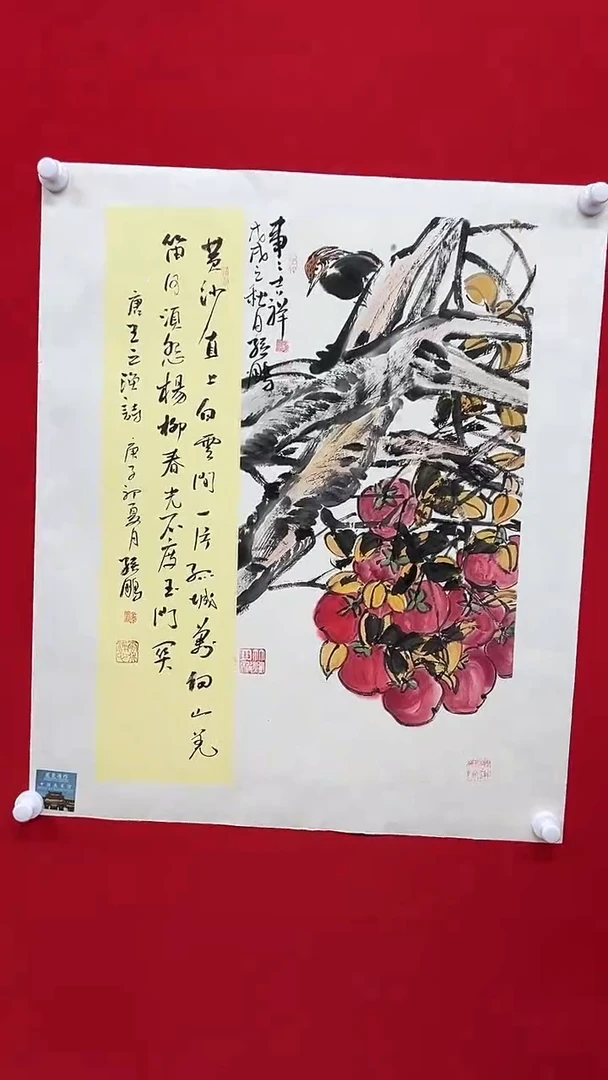 事〻吉祥
戊戌之秋月張鵬
黄沙直上白雲間一片孤城萬仞山羌
笛何須怨楊柳春光不度玉門関
唐王之渙詩 庚子初夏月 張鵬